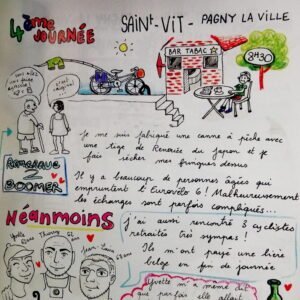 4ème JOURNÉE
SAINT-VIT - PAGNY LA VILLE
BAR TABAC
8H30
Je me suis fabriqué une canne à pêche avec
une tige de Renouée du Japon et je
fais sécher mes fringues dessus
REMARQUE
2
BOOMER
Il y a beaucoup de personnes âgées qui
empruntent l'Eurovélo 6 ! Malheureusement
les échanges sont parfois compliqués...
Néanmoins
j'ai aussi rencontré 3 cyclistes
retraités très sympas !
Ils m'ont payé une bière
belge en fin de journée
Yvette
62 ans
Thierry
Jean-Louis
Yvette m'a même dit
que parfois elle